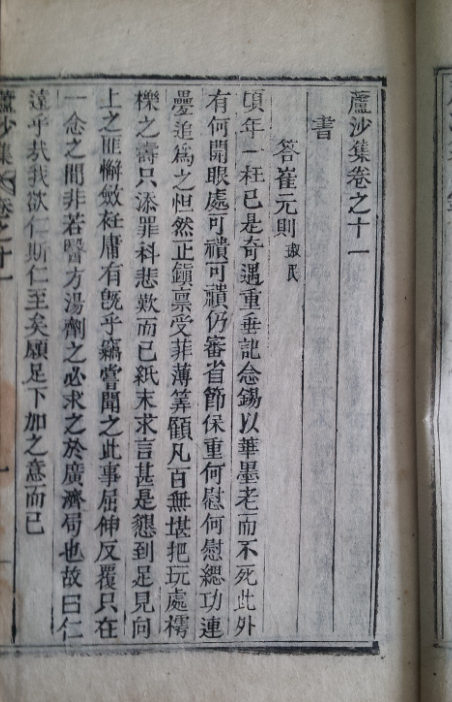 蘆沙集卷之十一
書
答崔元則 淑民
頃年一枉已是奇遇重垂記念錫以華墨老而不死此外
有何開眼處可讀可讀仍審省節保重何慰何慰緦功連
疊追爲之怛然正鎭稟受菲薄筭顧凡百無堪把玩處樗
櫟之壽只添罪科悲歎而已紙末求言甚是懇到足見向
上之匪懈斂衽庸有旣乎竊嘗聞之此事屈伸反覆只在
一念之間非若醫方湯劑之必求之於廣濟局也故曰仁
遠乎哉我欲仁斯仁至矣願足下加之意而已
蘆沙集 卷之十一
一